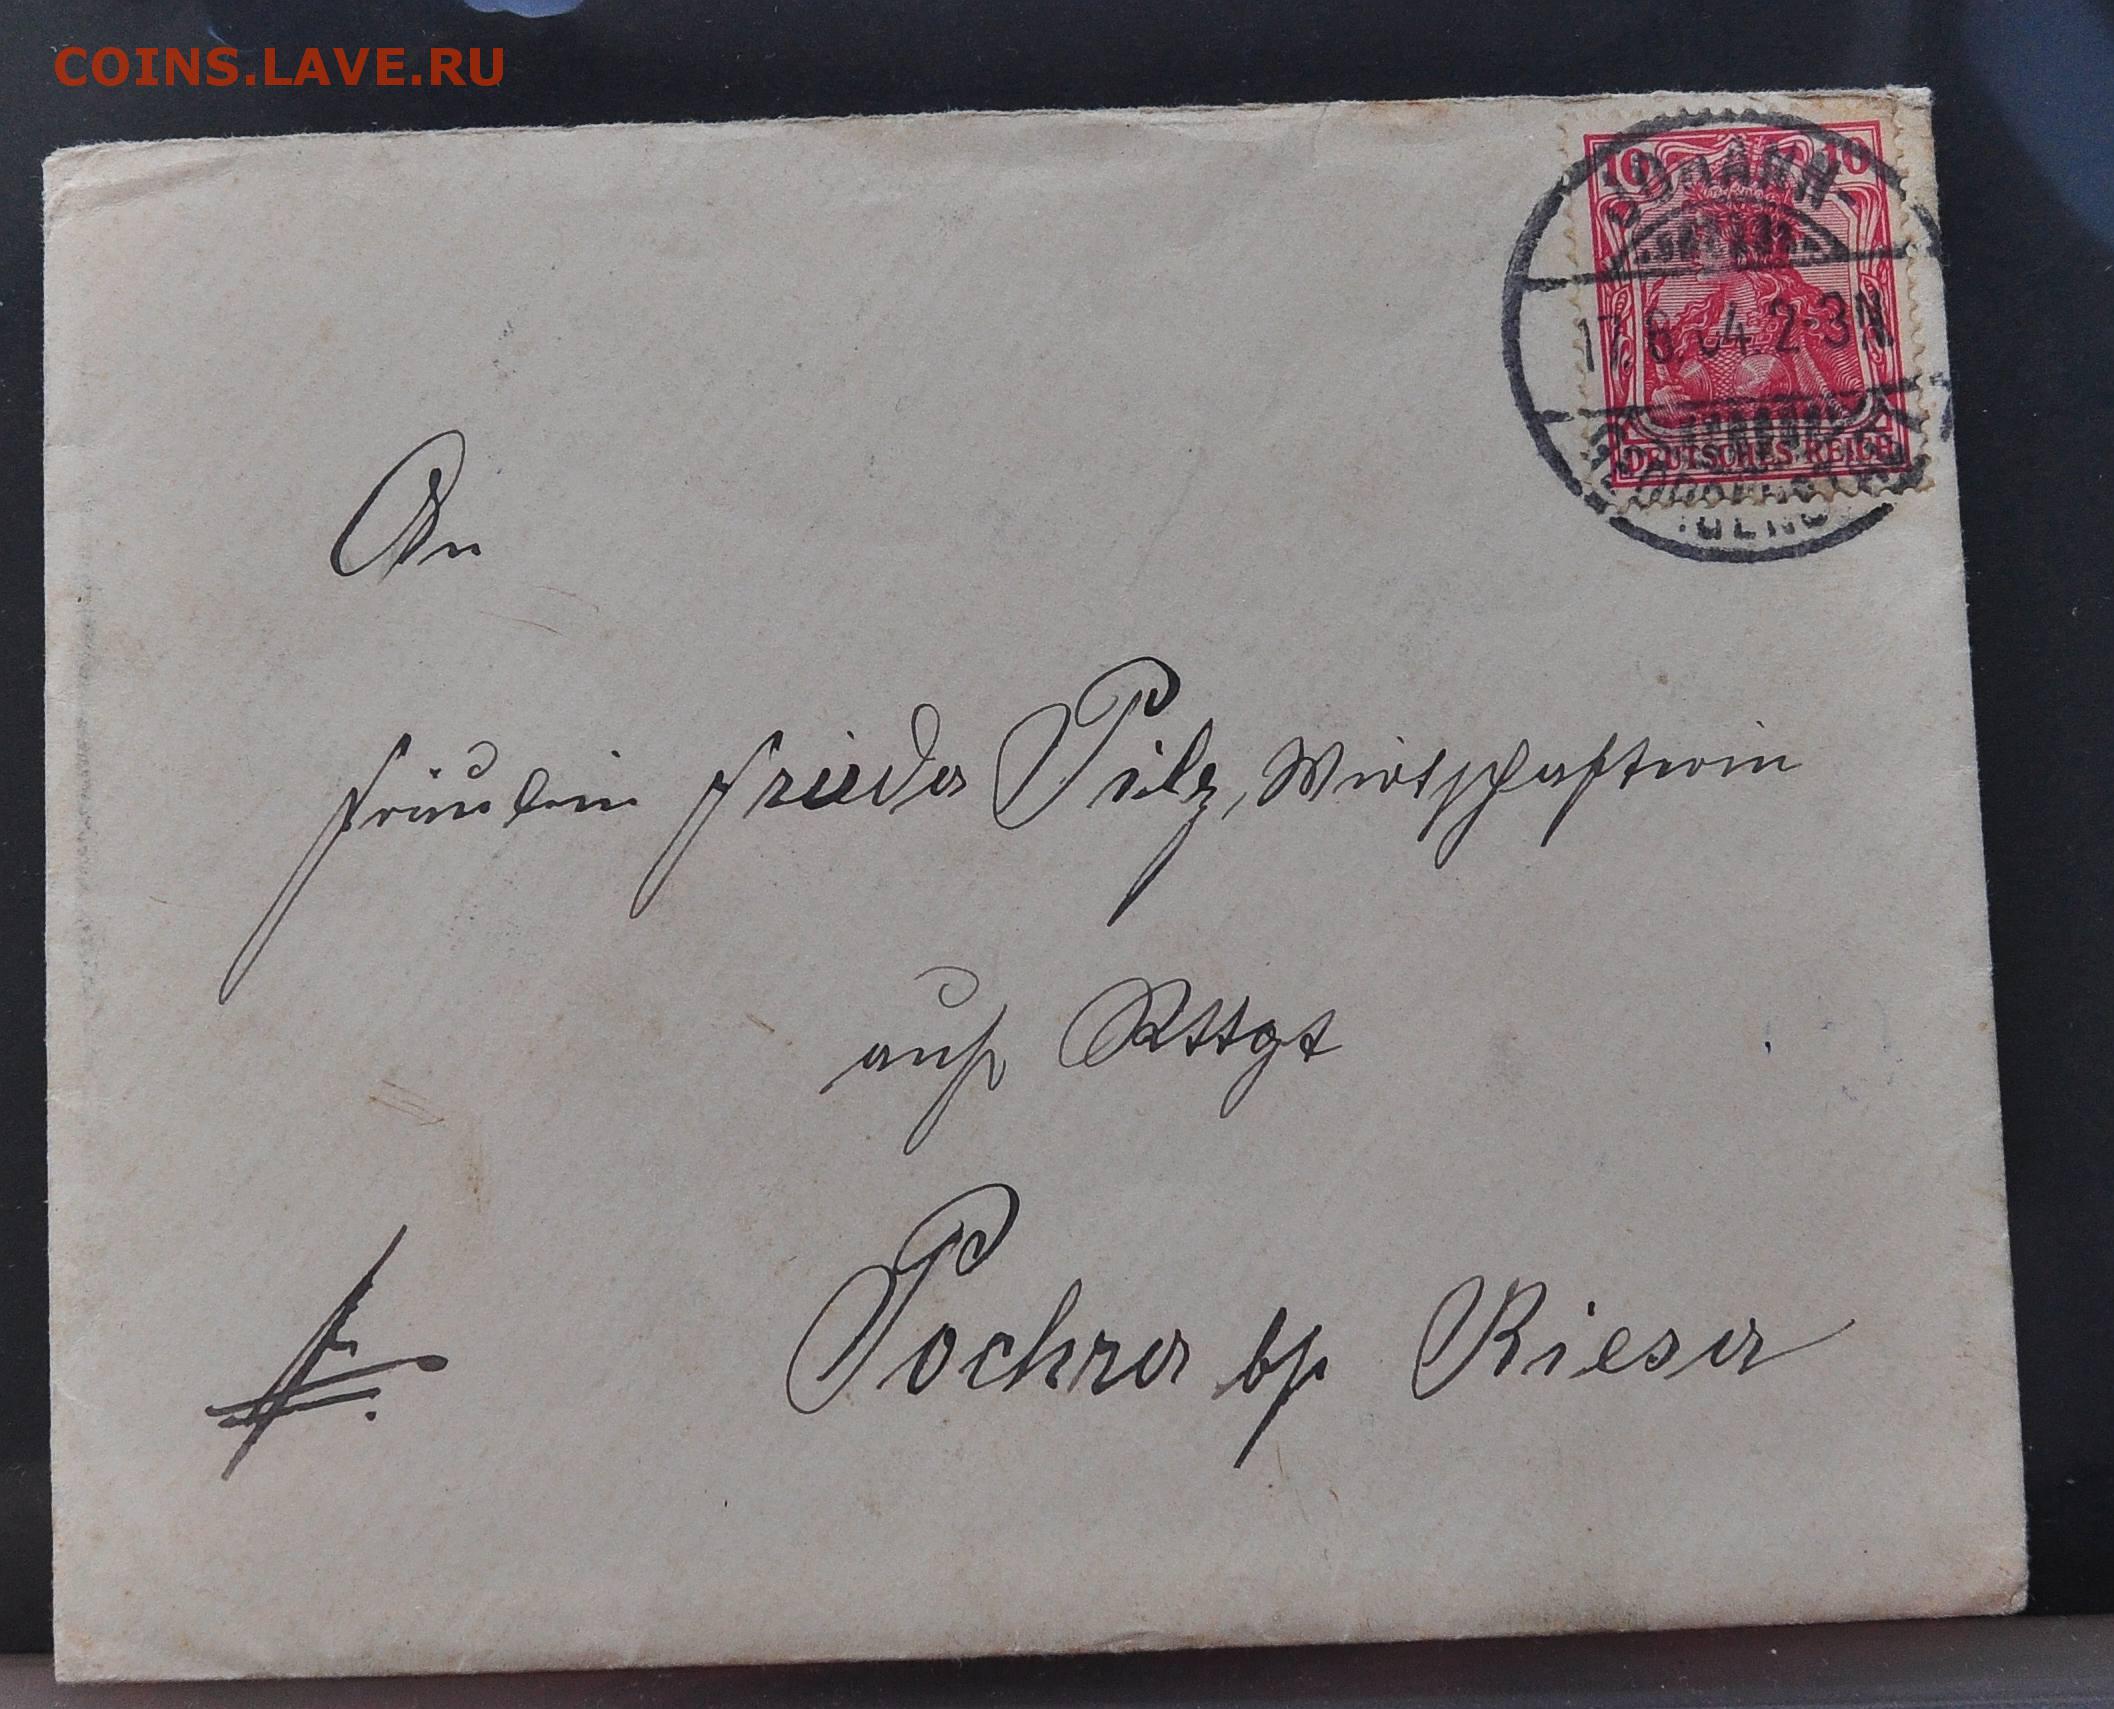 COINS.LAVE.RU
10 10
17.8.04.2-3N
DEUTSCHES REICH
An
Fräulein Frieda Pilz, Wirtschafterin
auf Rttgt
Pochra b/ Riesa